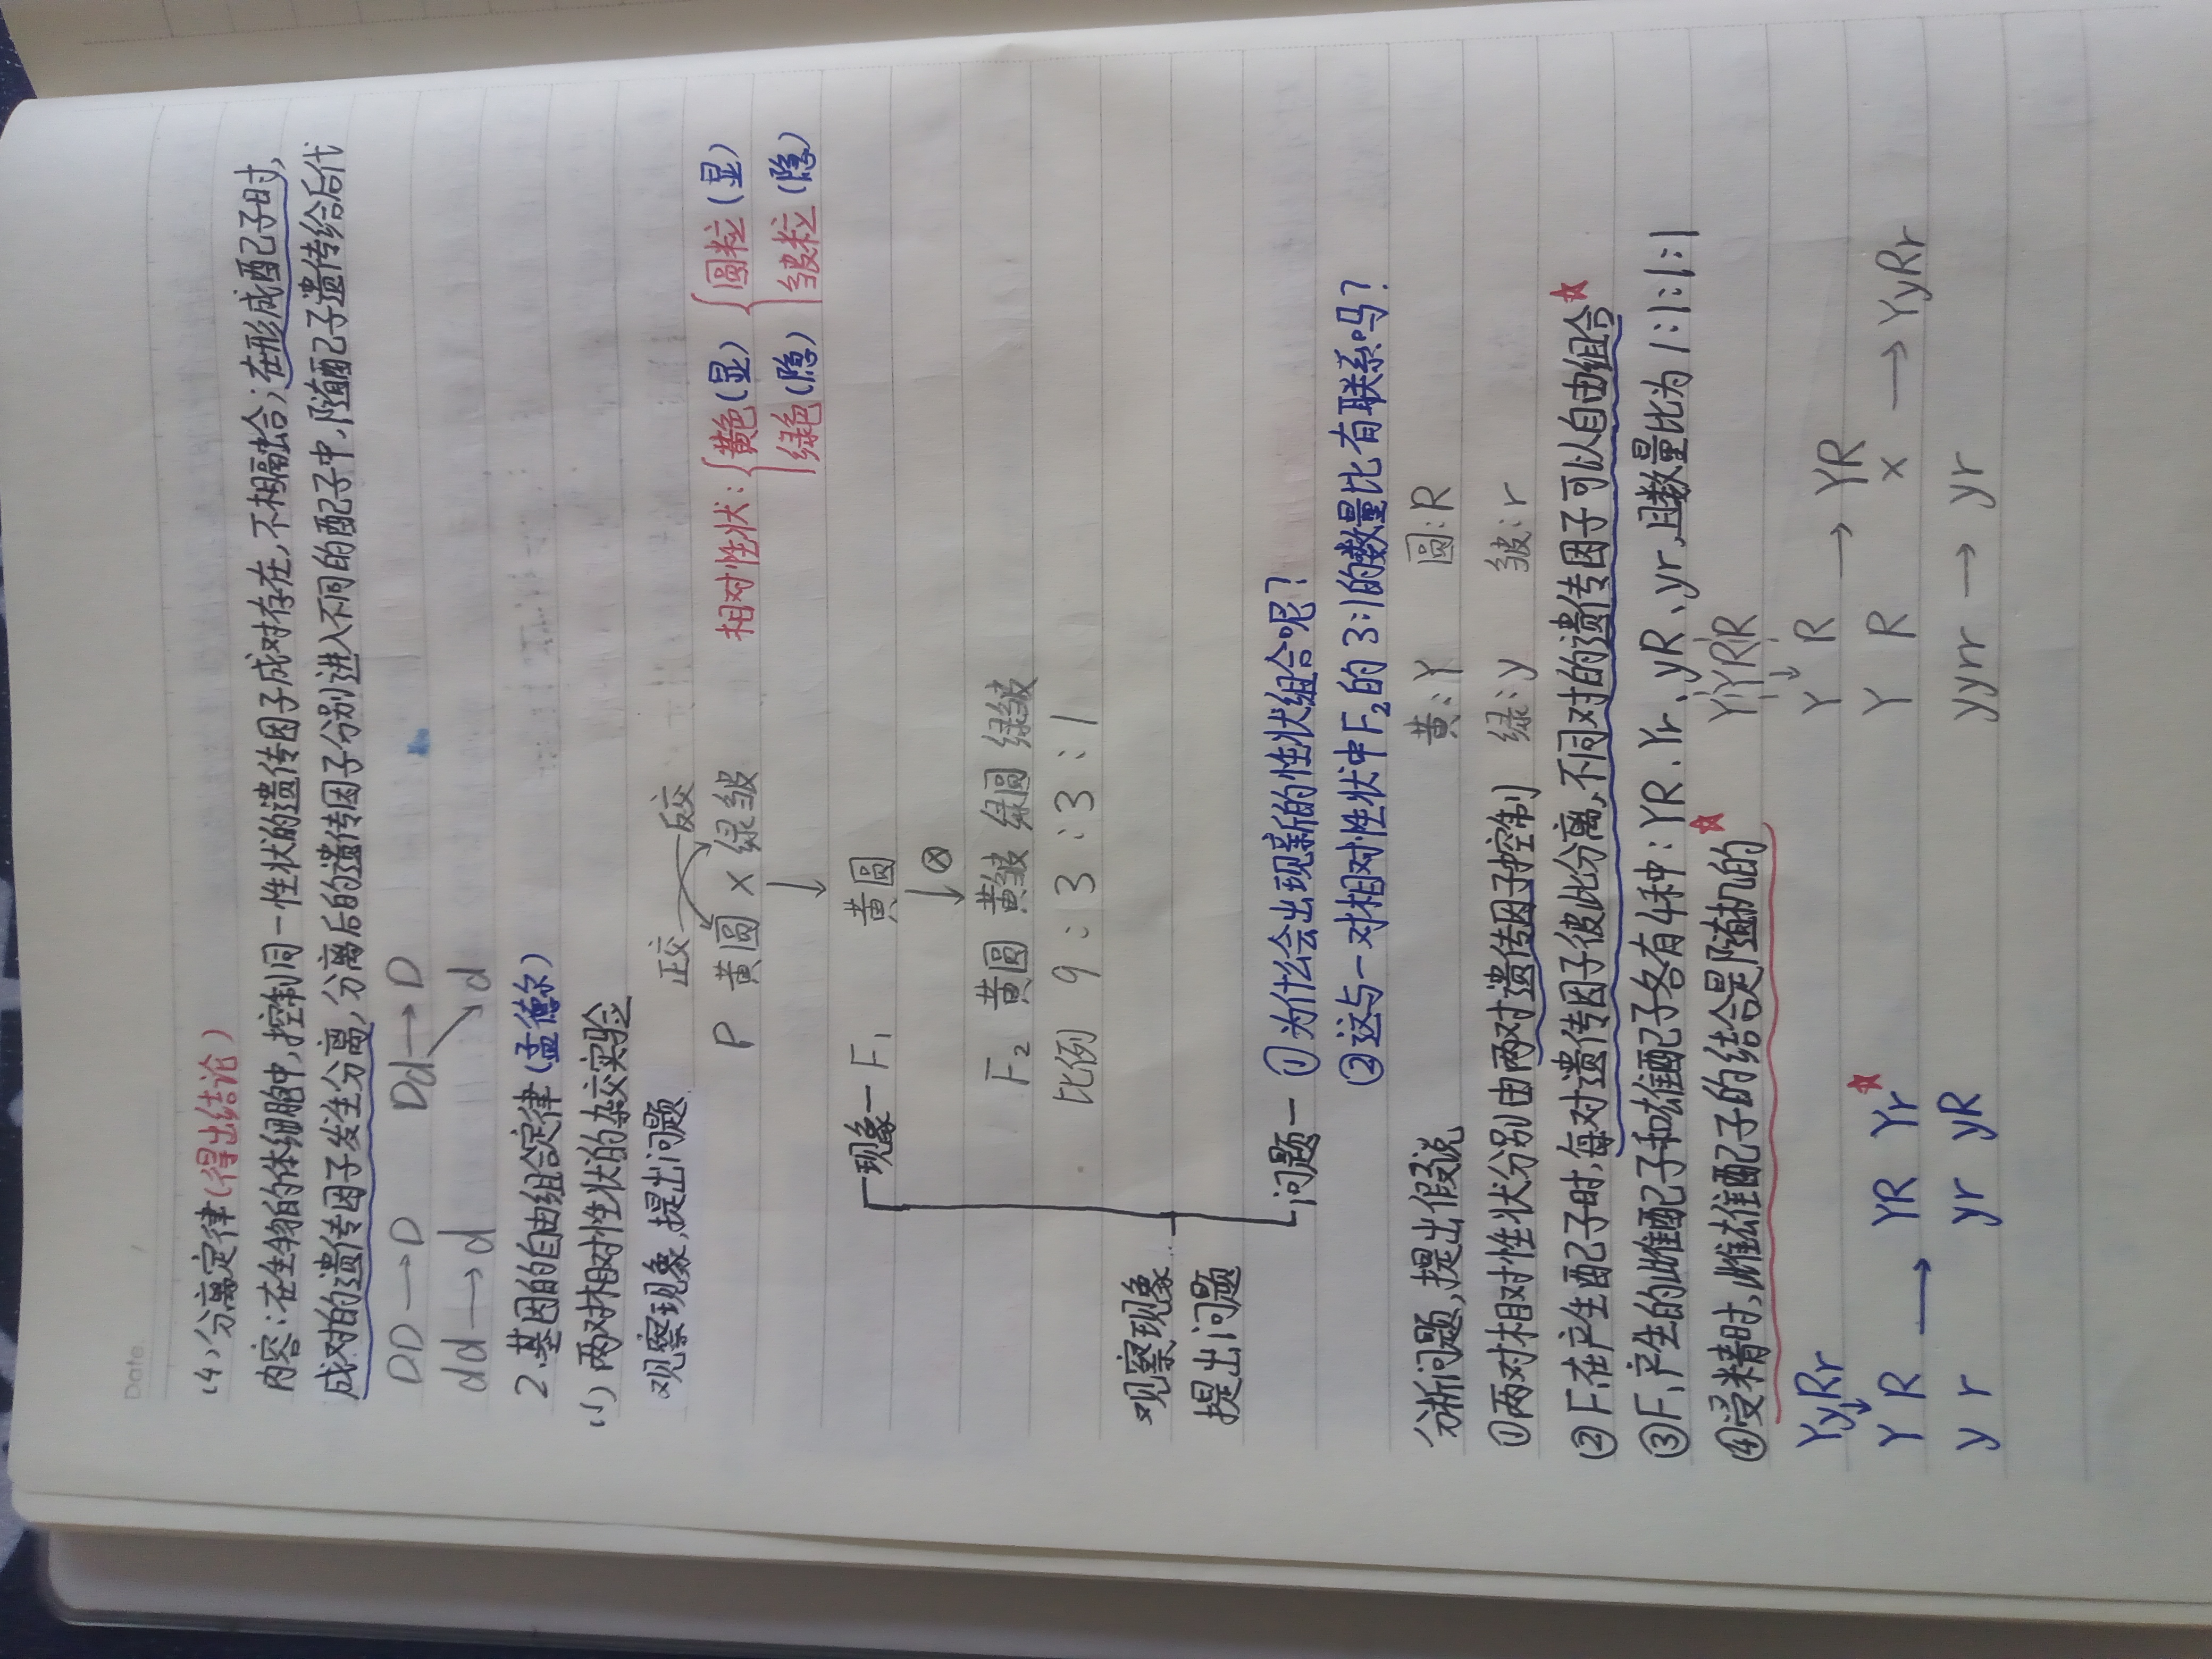 Date.
(4)分离定律(得出结论)
内容:在生物的体细胞中,控制同一性状的遗传因子成对存在,不相融合;在形成配子时,
成对的遗传因子发生分离,分离后的遗传因子分别进入不同的配子中,随配子遗传给后代
DD→D Dd→D
dd→d d
2.基因的自由组合定律(孟德尔)
(1)两对相对性状的杂交实验
观察现象,提出问题 正交 反交
P 黄圆×绿皱 相对性状:{黄色(显) {圆粒(显)
↓ 绿色(隐) 皱粒(隐)
现象— F₁ 黄圆
↓⊗
F₂ 黄圆 黄皱 绿圆 绿皱
比例 9:3:3:1
观察现象
提出问题
问题— ①为什么会出现新的性状组合呢?
②这与一对相对性状中F₂的3:1的数量比有联系吗?
分析问题,提出假说 黄:Y 圆:R
①两对相对性状分别由两对遗传因子控制 绿:y 皱:r
②F₁在产生配子时,每对遗传因子彼此分离,不同对的遗传因子可以自由组合☆
③F₁产生的雌配子和雄配子各有4种:YR、Yr、yR、yr,且数量比为1:1:1:1
④受精时,雌雄配子的结合是随机的☆ YYRR
YyRr ↓
↓ Y R → YR
Y R → YR Yr☆ Y R × → YyRr
y r yr yR yyrr → yr